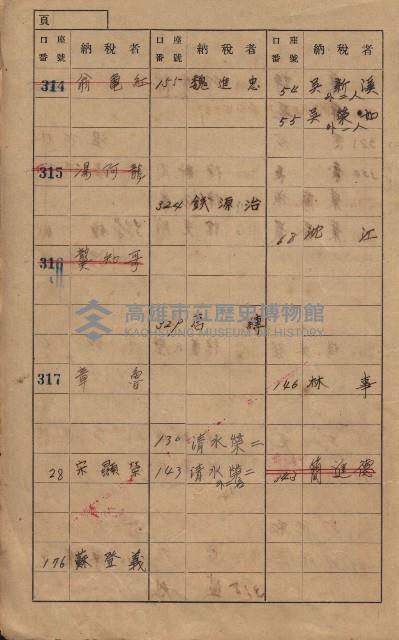 頁
口番 座號 納稅者
314 翁龜紅
315 湯阿龍
316 龔知哥
317 章魯
28 宋顯榮
176 蘇登義
口番 座號 納稅者
155 魏進忠
324 錢源治
329
130 清水榮二
143 清水榮二
口番 座號 納稅者
54 吳新溪
外二人
55 吳榮如
外二人
68 沈江
146 林事
簡進德
高雄市立歷史博物館
KAOHSIUNG MUSEUM OF HISTORY